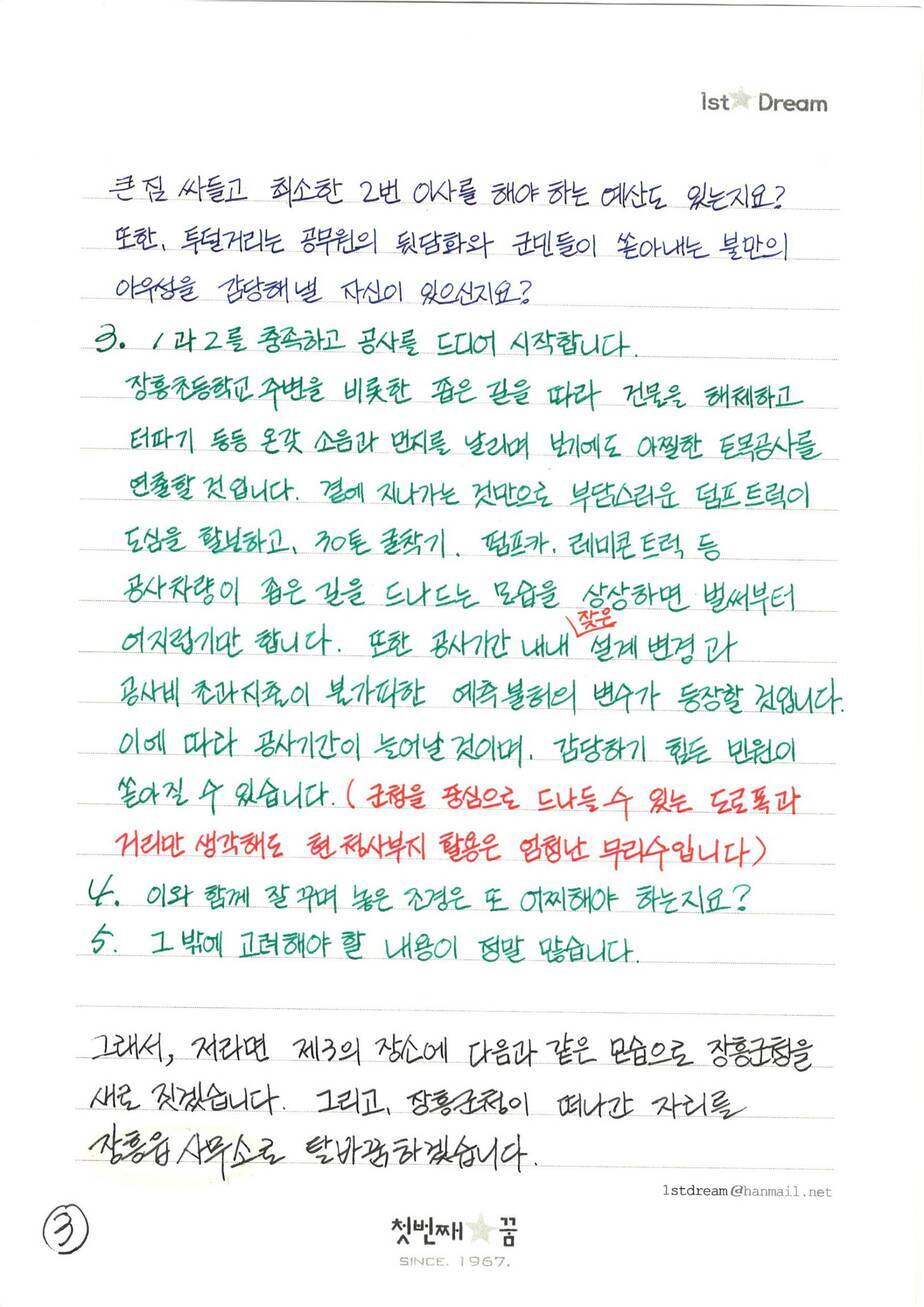 1st Dream
큰 짐 싸들고 최소한 2번 이사를 해야 하는 예산도 있는지요?
또한, 투덜거리는 공무원의 뒷담화와 군민들이 쏟아내는 불만의
아우성을 감당해 낼 자신이 있으신지요?
3. 1과 2를 충족하고 공사를 드디어 시작합니다.
장흥초등학교 주변을 비롯한 좁은 길을 따라 건물을 해체하고
터파기 등등 온갖 소음과 먼지를 날리며 보기에도 아찔한 토목공사를
연출할 것입니다. 곁에 지나가는 것만으로 부담스러운 덤프트럭이
도심을 활보하고, 30톤 굴착기, 펌프카, 레미콘 트럭 등
공사차량이 좁은 길을 드나드는 모습을 상상하면 벌써부터
어지럽기만 합니다. 또한 공사기간 내내 잦은 설계 변경과
공사비 초과지출이 불가피한 예측불허의 변수가 등장할 것입니다.
이에 따라 공사기간이 늘어날 것이며, 감당하기 힘든 민원이
쏟아질 수 있습니다. (군청을 중심으로 드나들 수 있는 도로폭과
거리만 생각해도 현 청사부지 활용은 엄청난 무리수입니다)
4. 이와 함께 잘 꾸며 놓은 조경은 또 어찌해야 하는지요?
5. 그 밖에 고려해야 할 내용이 정말 많습니다.
그래서, 저라면 제3의 장소에 다음과 같은 모습으로 장흥군청을
새로 짓겠습니다. 그리고, 장흥군청이 떠나간 자리를
장흥읍 사무소로 탈바꿈하겠습니다.
1stdream@hanmail.net
3
첫번째 꿈
SINCE. 1967.